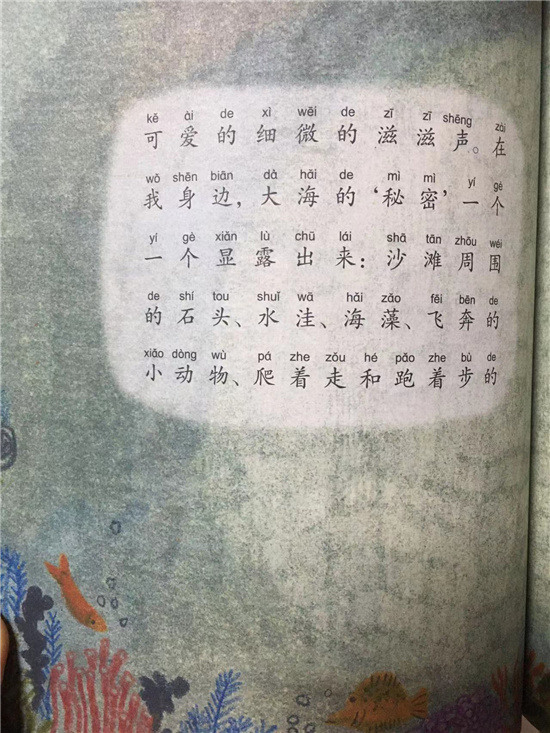 kě ài de xì wēi de zī zī shēng zài
可爱的细微的滋滋声。在
wǒ shēn biān dà hǎi de mì mì yí gè
我身边，大海的‘秘密’一个
yí gè xiǎn lù chū lái shā tān zhōu wéi
一个显露出来：沙滩周围
de shí tou shuǐ wā hǎi zǎo fēi bēn de
的石头、水洼、海藻、飞奔的
xiǎo dòng wù pá zhe zǒu hé pǎo zhe bù de
小动物、爬着走和跑着步的